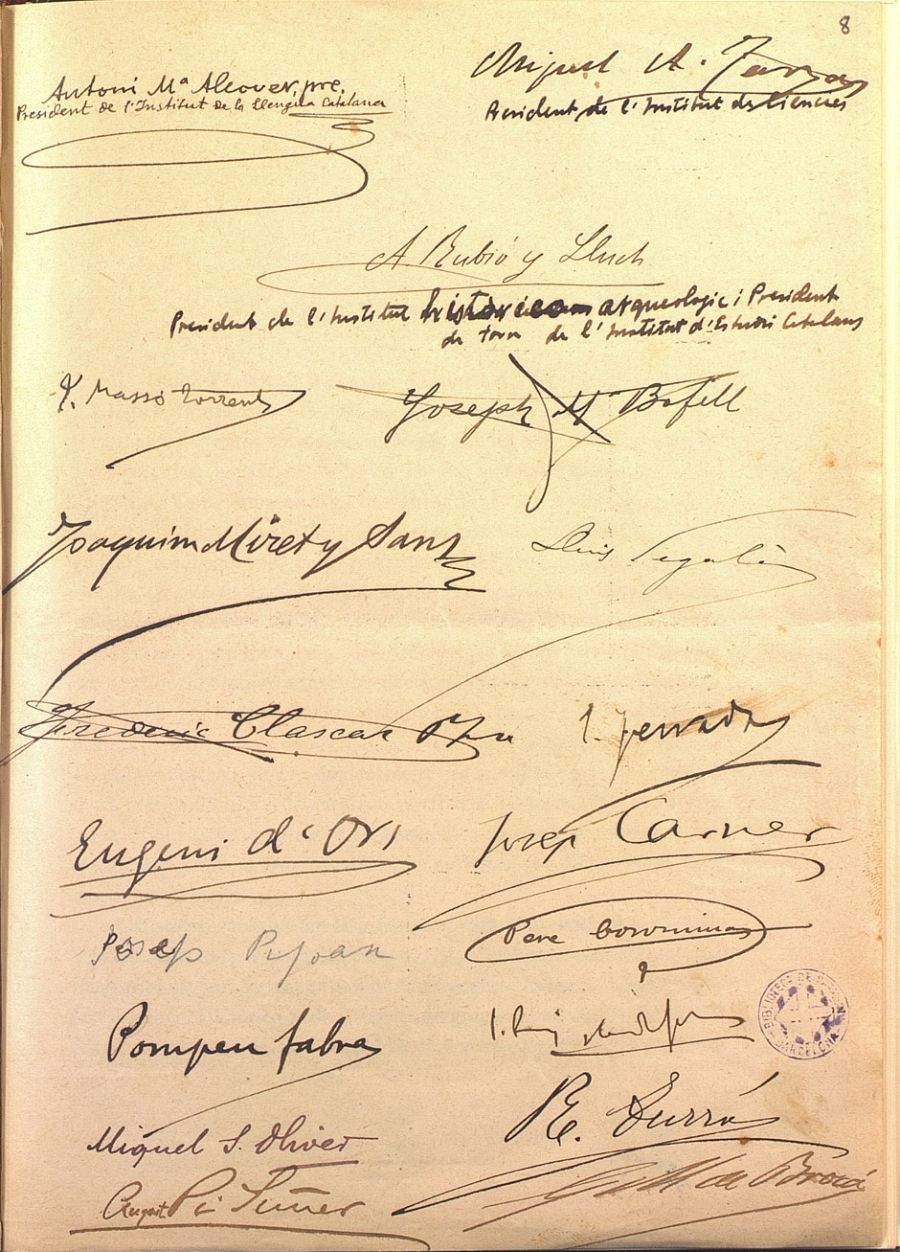 8
Antoni Mª Alcover, pre.
President de l'Institut de la Llengua Catalana
Miquel A. Fargas
President de l'Institut de Ciencies
A Rubió y Lluch
President de l'Institut històrico arqueologic i President
de torn de l'Institut d'Estudis Catalans
J. Massó Torrents
Joseph Mª Bofill
Joaquim Miret y Sans
Lluis Segalá
Frederic Clascar Pre
E. Terradas
Eugeni d'Ors
Josep Carner
Josep Pijoan
Pere Coromines
Pompeu Fabra
J. Puig
Miquel S. Oliver
R. E. Turró
August Pi Suñer
Gull de Brocá
BIBLIOTECA DE
BARCELONA